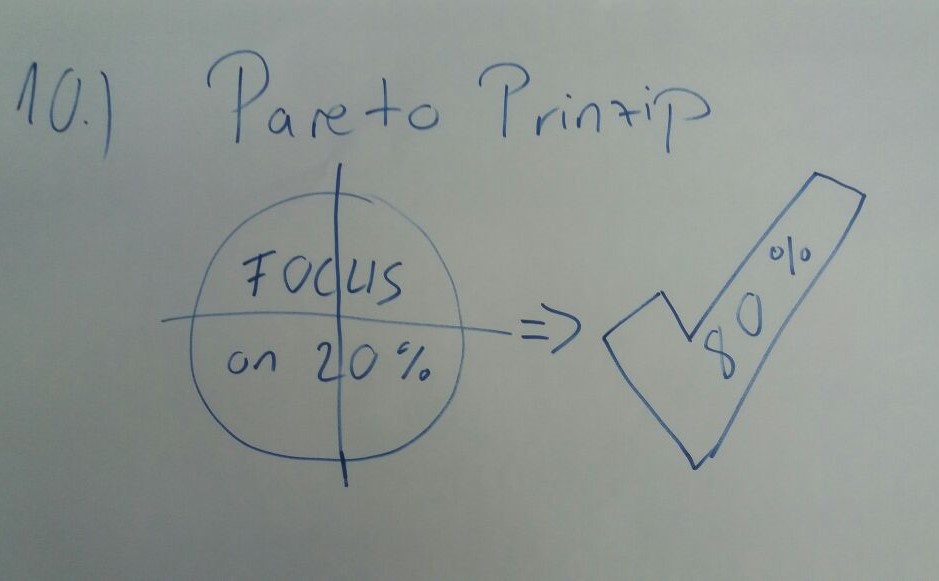 10.) Pareto Prinzip
FOCUS
on 20%
=>
80%